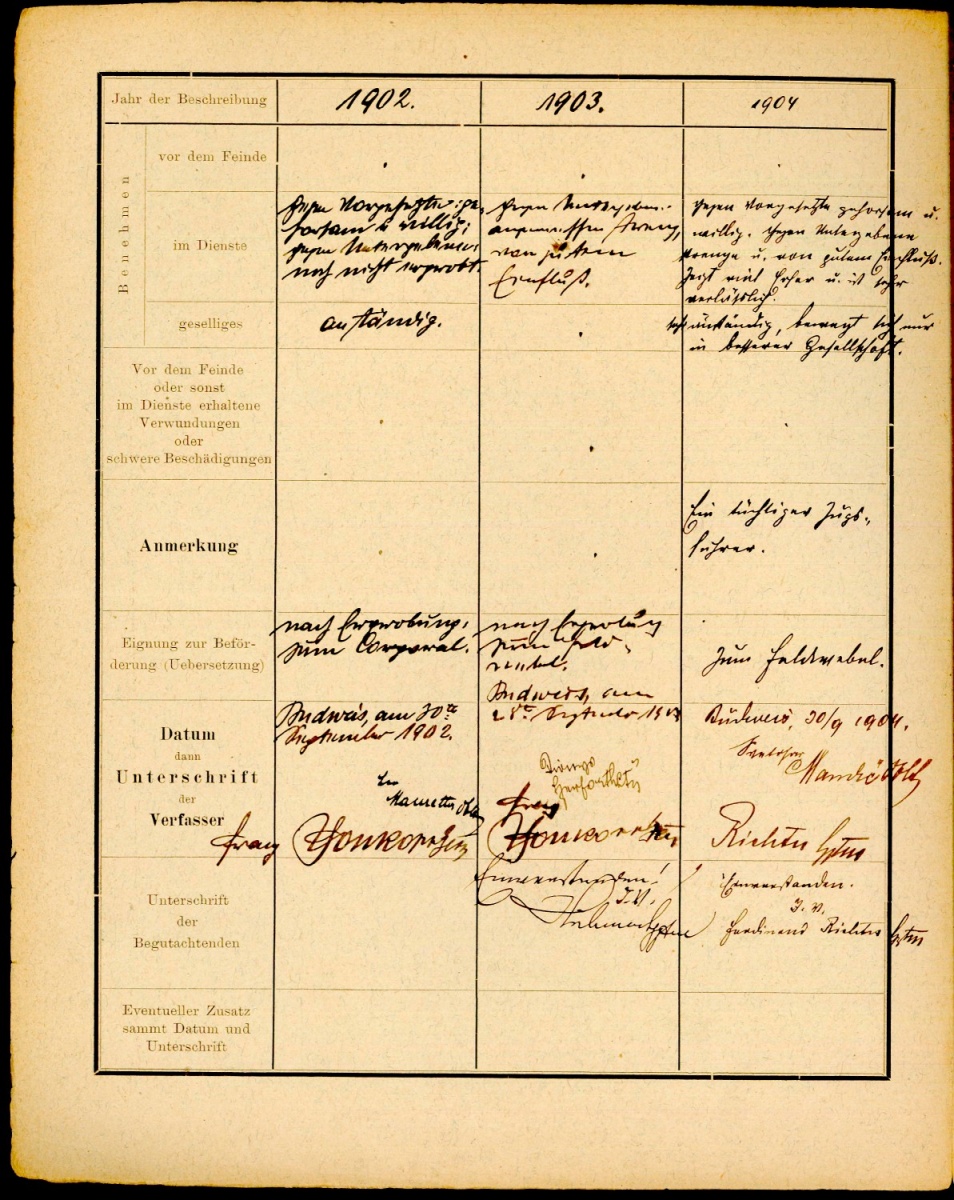 Jahr der Beschreibung
1902.
1903.
1904
Benehmen
vor dem Feinde
im Dienste
gegen Vorgesetzte: ge-
horsam u. willig;
gegen Untergebene:
noch nicht erprobt.
gegen Untergebene:
angemessen streng,
von gutem
Einfluß.
gegen Vorgesetzte gehorsam u.
willig. Gegen Untergebene
strenge u. von gutem Einfluß.
Zeigt viel Eifer u. ist sehr
verläßlich.
geselliges
anständig.
anständig, bewegt sich nur
in besserer Gesellschaft.
Vor dem Feinde
oder sonst
im Dienste erhaltene
Verwundungen
oder
schwere Beschädigungen
Anmerkung
Ein tüchtiger Zugs-
führer.
Eignung zur Beför-
derung (Uebersetzung)
nach Erprobung,
zum Corporal.
nach Erprobung
zum Feld-
webel.
Zum Feldwebel.
Datum
dann
Unterschrift
der
Verfasser
Budweis, am 30te
September 1902.
Budweis, am
28te September 1903
Budweis, 30/9 1904.
Franz
Franz
Richter Hptm
Unterschrift
der
Begutachtenden
Einverstanden!
I. V.
Hptm
Einverstanden.
I. V.
Ferdinand Richter Hptm
Eventueller Zusatz
sammt Datum und
Unterschrift